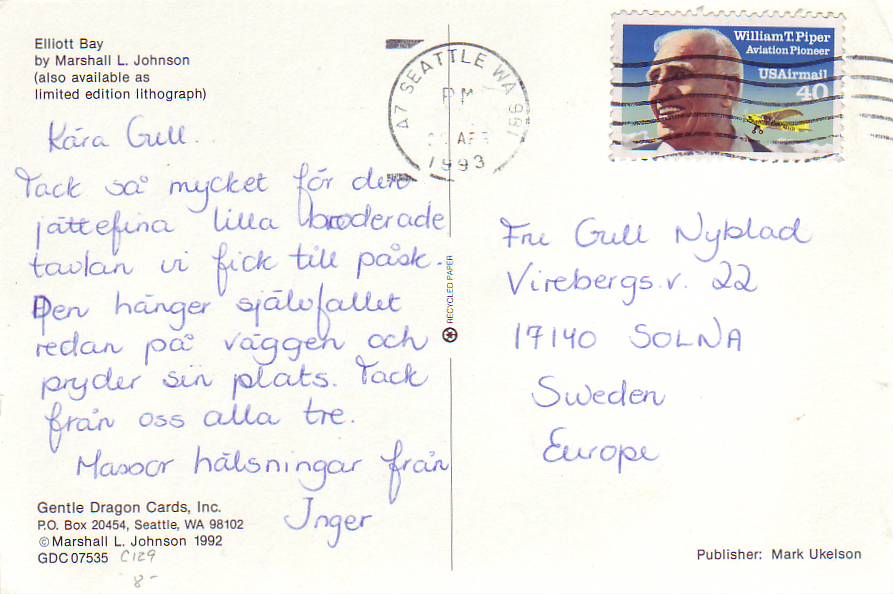 Elliott Bay
by Marshall L. Johnson
(also available as
limited edition lithograph)
Kära Gull..
Tack så mycket för den
jättefina lilla broderade
tavlan vi fick till påsk.
Den hänger självfallet
redan på väggen och
pryder sin plats. Tack
från oss alla tre.
Massor hälsningar från
Inger
Gentle Dragon Cards, Inc.
P.O. Box 20454, Seattle, WA 98102
©Marshall L. Johnson 1992
GDC07535 C129
8-
A7 SEATTLE WA 981
PM
APR
1993
RECYCLED PAPER
William T. Piper
Aviation Pioneer
USAirmail
40
Fru Gull Nyblad
Virebergs.v. 22
17140 SOLNA
Sweden
Europe
Publisher: Mark Ukelson